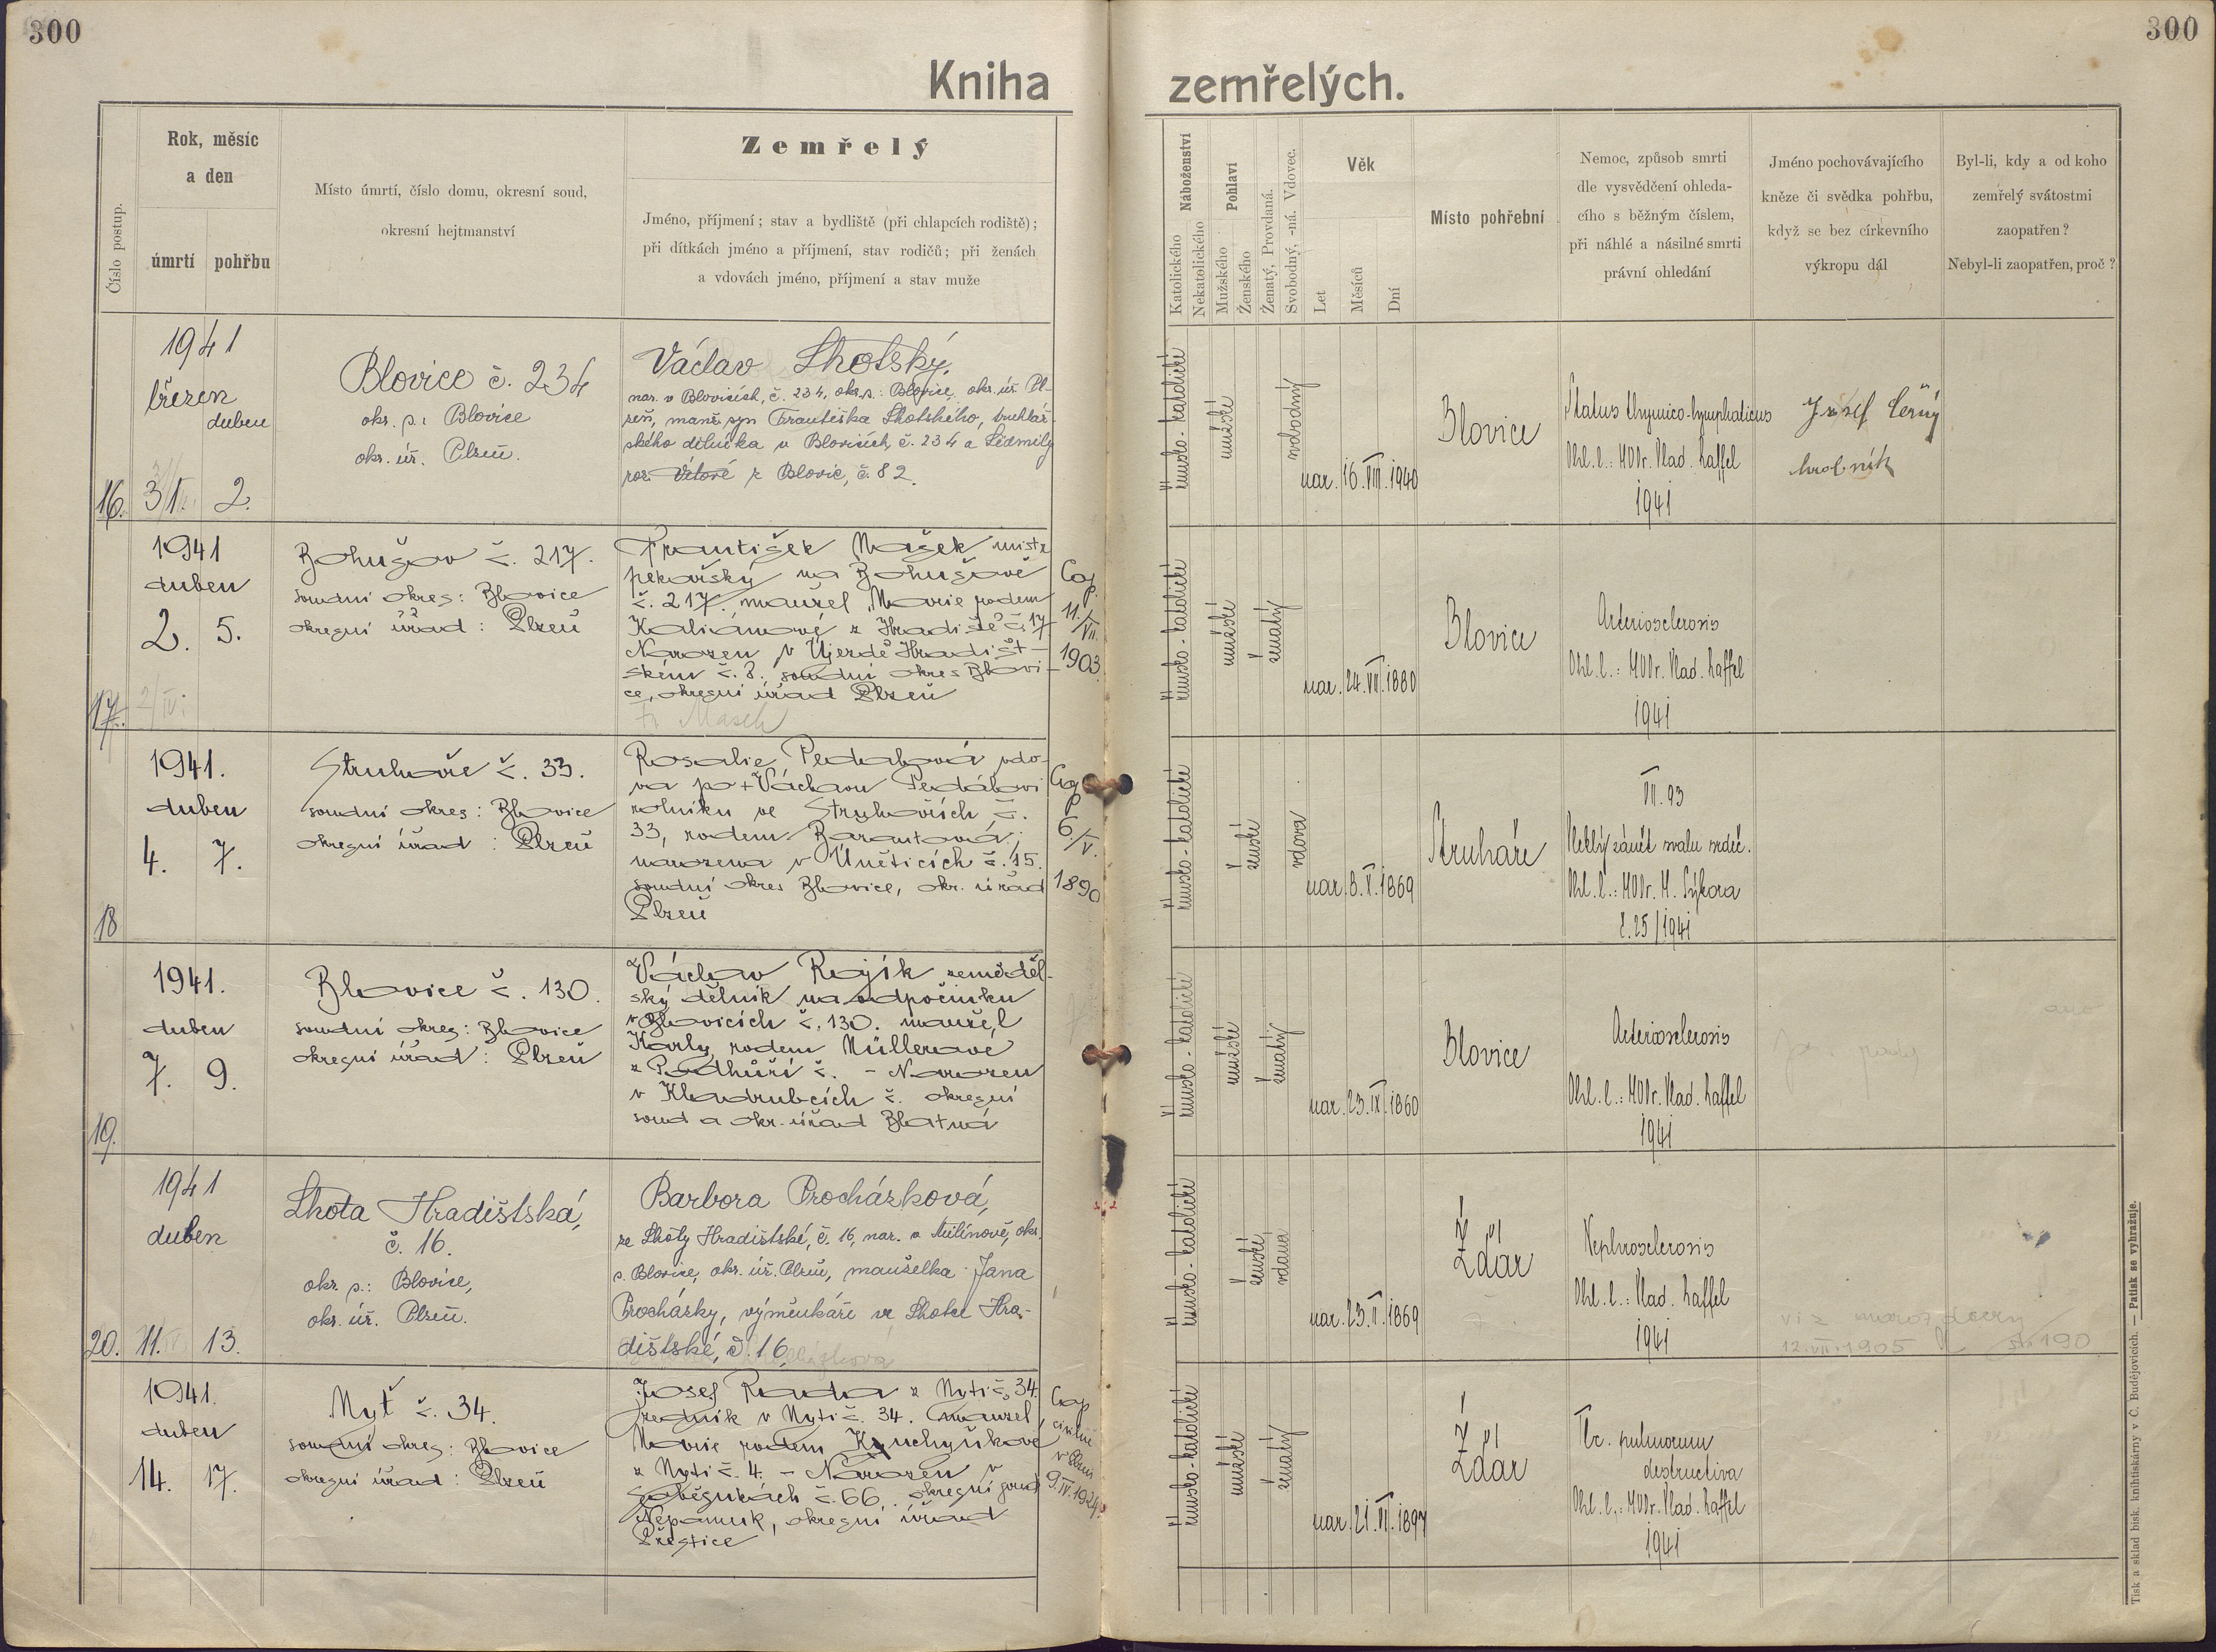 300
300
Kniha zemřelých.
Číslo postup.
Rok, měsíc
a den
úmrtí
pohřbu
Místo úmrtí, číslo domu, okresní soud,
okresní hejtmanství
Zemřelý
Jméno, příjmení; stav a bydliště (při chlapcích rodiště);
při dítkách jméno a příjmení, stav rodičů; při ženách
a vdovách jméno, příjmení a stav muže
Náboženství
Katolického
Nekatolického
Pohlaví
Mužského
Ženského
Ženatý, Provdaná.
Svobodný, -ná. Vdovec.
Věk
Let
Měsíců
Dní
Místo pohřební
Nemoc, způsob smrti
dle vysvědčení ohleda-
cího s běžným číslem,
při náhlé a násilné smrti
právní ohledání
Jméno pochovávajícího
kněze či svědka pohřbu,
když se bez církevního
výkropu dál
Byl-li, kdy a od koho
zemřelý svátostmi
zaopatřen?
Nebyl-li zaopatřen, proč?
16.
1941
březen
duben
31. 2.
Blovice č. 234
okr. s.: Blovice
okr. úř. Plzeň.
Václav Lhotský,
nar. v Blovicích, č. 234, okr. s.: Blovice, okr. úř. Pl-
zeň, manž. syn Františka Lhotského, truhlář-
ského dělníka v Blovicích, č. 234 a Lidmily
roz. Vítové z Blovic, č. 82.
římsko-katolické
mužské
svobodný
nar. 16. VIII. 1940
Blovice
Status thymico-lymphaticus
Ohl. l.: MUDr. Vlad. Haffel
1941
Josef Černý
hrobník
17.
1941
duben
2. 5.
2/IV.
Bohušov č. 217.
soudní okres: Blovice
okresní úřad: Plzeň
František Mašek mistr
pekařský na Bohušově
č. 217. manžel Marie rodem
Kaliánové z Hradiště č. 17
Narozen v Újezdě Hradišt-
ském č. 8. soudní okres Blovi-
ce, okresní úřad Plzeň
Fr. Masch
Cop.
11./VII.
1903
římsko-katolické
mužské
ženatý
nar. 24. VII. 1880
Blovice
Arteriosclerosis
Ohl. l.: MUDr. Vlad. Haffel
1941
18
1941.
duben
4. 7.
Struhaře č. 33.
soudní okres: Blovice
okresní úřad: Plzeň
Rosalie Pedabová vdo-
va po + Václavu Pedábovi
rolníku ve Struhařích č.
33, rodem Barantová;
narozena v Úněticích č. 15.
soudní okres Blovice, okr. úřad
Plzeň
Cop
6./V.
1890
římsko-katolické
ženské
vdova
nar. 8. V. 1869
Struhaře
VII. 93
Vleklý zánět svalu srdeč.
Ohl. l.: MUDr. M. Sýkora
č. 25/1941
19.
1941.
duben
7. 9.
Blovice č. 130.
soudní okres: Blovice
okresní úřad: Plzeň
Václav Rojík zeměděl-
ský dělník na odpočinku
v Blovicích č. 130. manžel
Karly rodem Müllerové
z Podhůří č. - Narozen
v Kladrubcích č. okresní
soud a okr. úřad Blatná
římsko-katolické
mužské
ženatý
nar. 23. IX. 1860
Blovice
Arteriosclerosis
Ohl. l.: MUDr. Vlad. Haffel
1941
ano
20.
1941
duben
11. 13.
Lhota Hradištská,
č. 16.
okr. s.: Blovice,
okr. úř. Plzeň.
Barbora Procházková,
ze Lhoty Hradištské, č. 16, nar. v Milínově, okr.
s. Blovice, okr. úř. Plzeň, manželka Jana
Procházky, výměnkáře ve Lhotě Hra-
dištské, č. 16.
římsko-katolické
ženské
vdaná
nar. 23. II. 1869
Žďár
Nephrosclerosis
Ohl. l.: Vlad. Haffel
1941
viz naroz dcery
12. VII. 1905 str. 190
1941.
duben
14. 17.
Nyť č. 34.
soudní okres: Blovice
okresní úřad: Plzeň
Josef Rada z Nyti č. 34.
zedník v Nyti č. 34. manžel
Marie rodem Kuchyňkové
z Nyti č. 4. - Narozen v
Soběsukách č. 66, okresní soud
Nepomuk, okresní úřad
Přeštice
Cop
civilně
v Plzni
9. IV. 1924.
římsko-katolické
mužské
ženatý
nar. 21. VI. 1897
Žďár
Tbc. pulmorum
destructiva
Ohl. l.: MUDr. Vlad. Haffel
1941
Tisk a sklad bisk. knihtiskárny v Č. Budějovicích. — Patisk se vyhražuje.